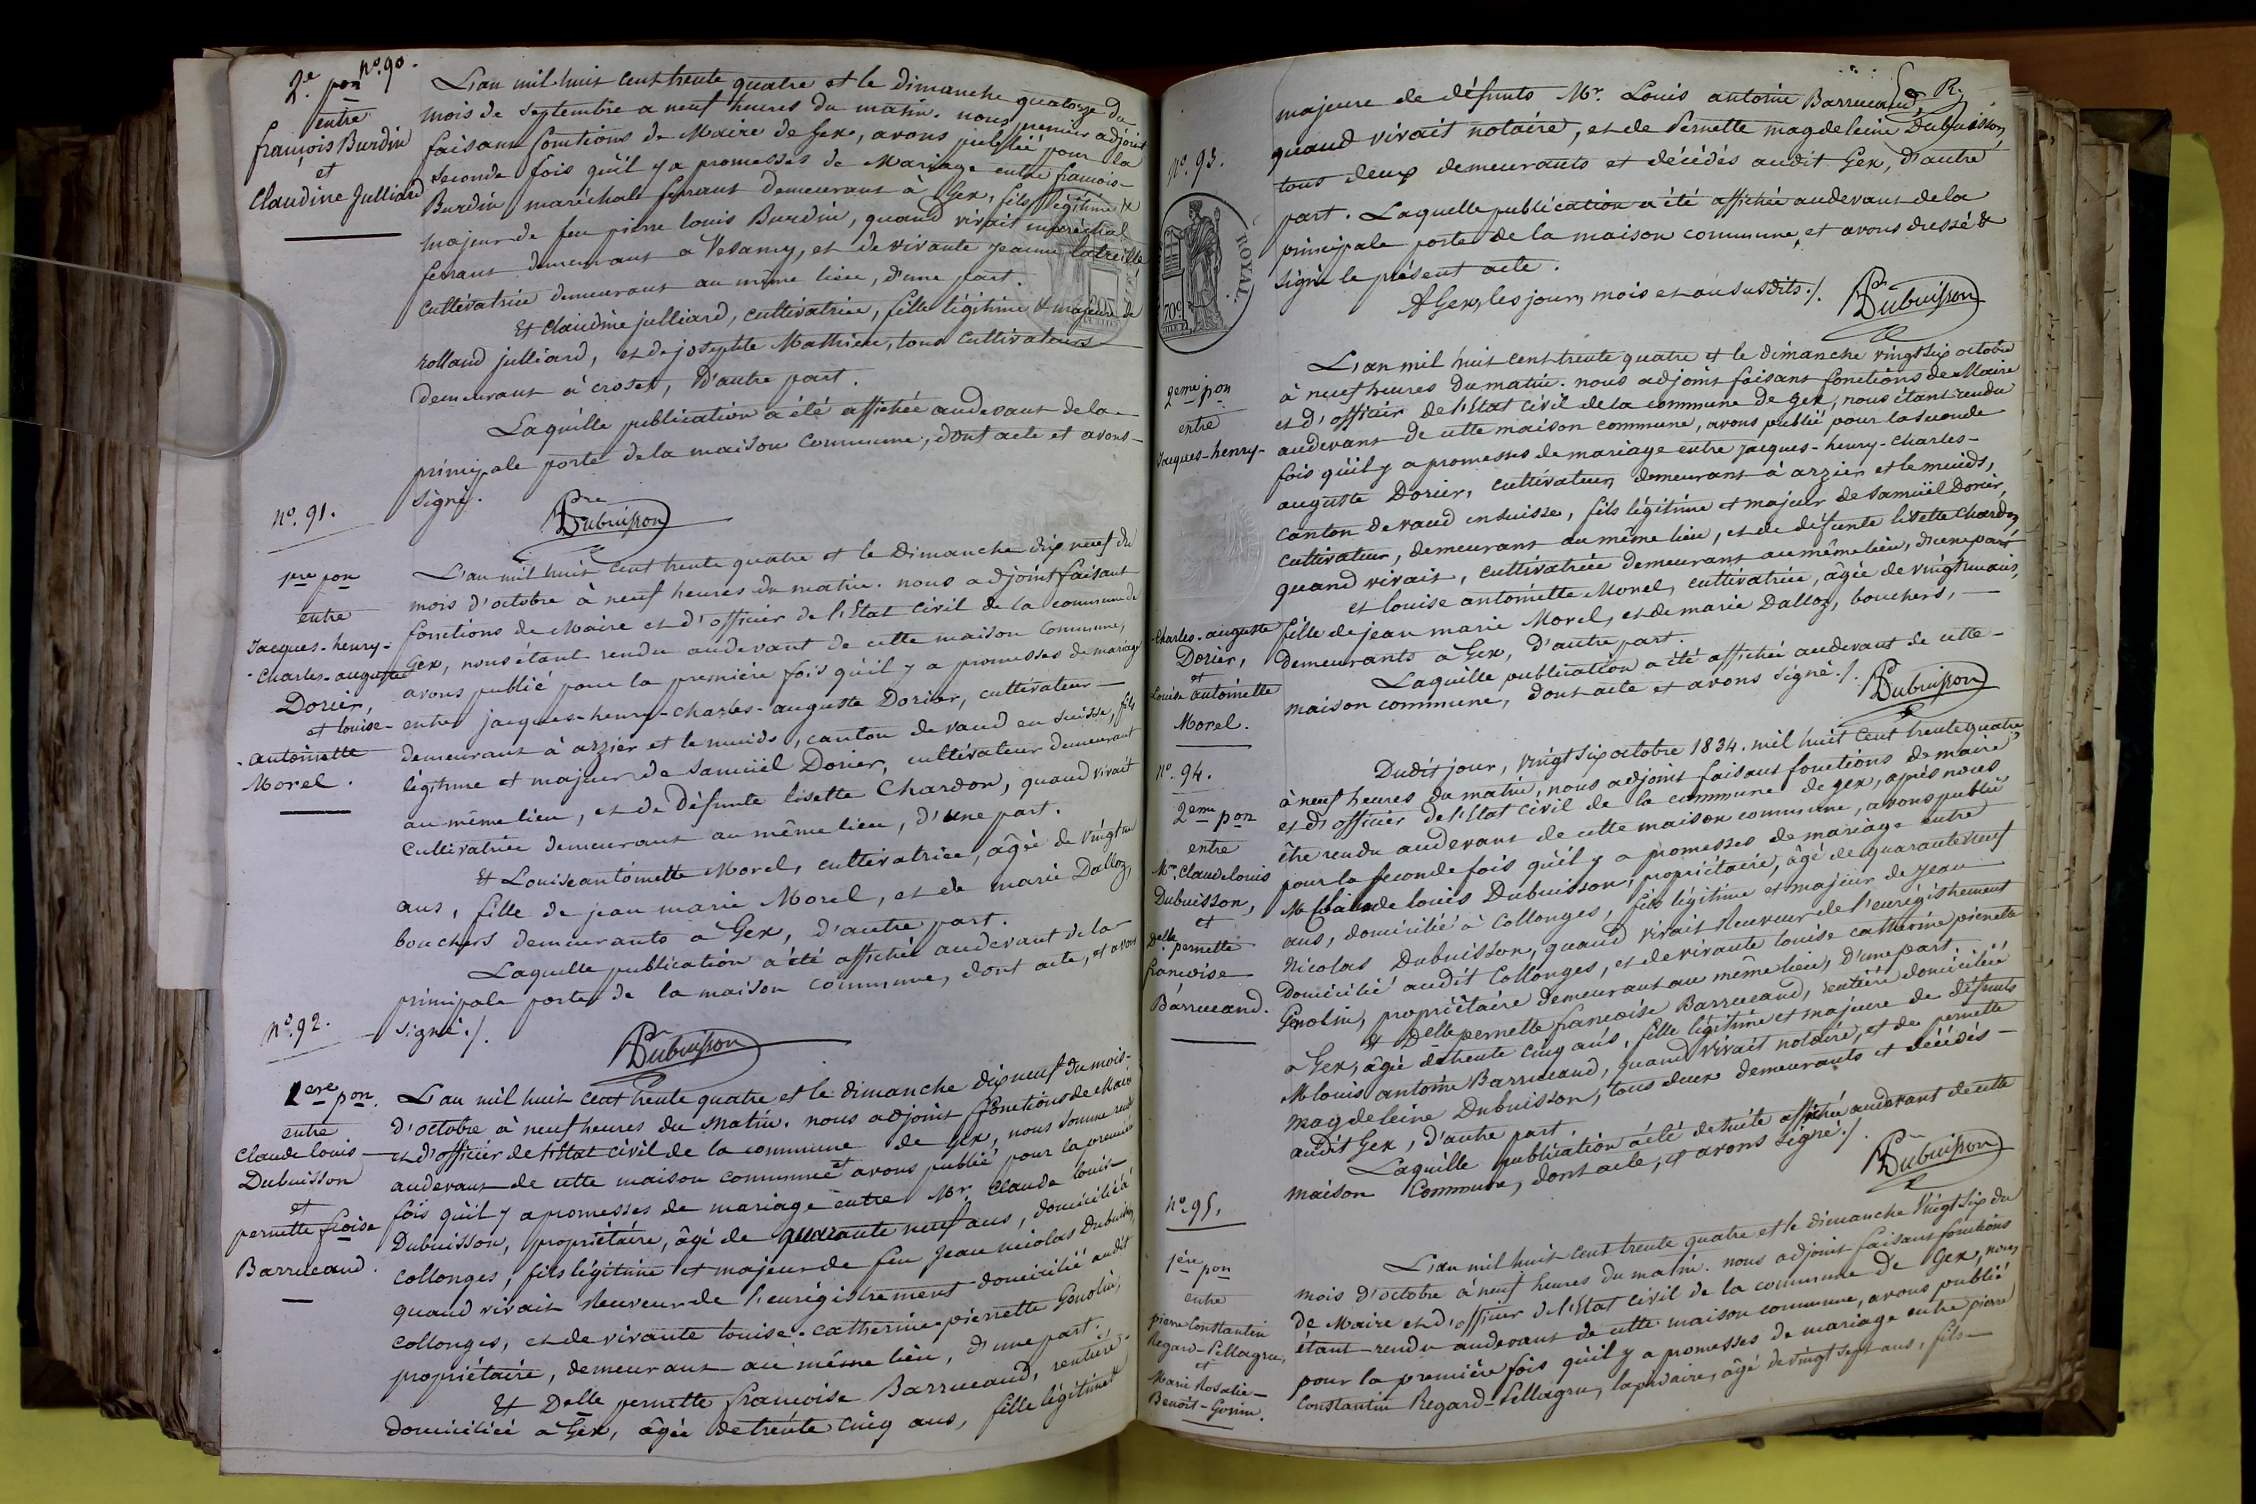 nº. 90.
2e. pon
entre
françois Burdin
et
Claudine Julliard
L'an mil huit cent trente quatre et le Dimanche quatorze du
mois de septembre a neuf heures du matin. nous premier adjoint
faisant fonctions de Maire de Gex, avons publié pour la
seconde fois qu'il y a promesses de Mariage entre françois-
Burdin maréchal ferrant demeurant à Gex, fils légitime &
majeur de feu pierre louis Burdin, quand vivait maréchal
ferrant demeurant a Vesancy, et de vivante jeanne
cultivatrice demeurant au même lieu, d'une part.
Et Claudine julliard, cultivatrice, fille légitime & majeure de
rolland julliard, et de josephte Mathieu, tous cultivateurs
demeurant à crozet, d'autre part.
Laquelle publication a été affichée audevant de la
principale porte de la maison commune, dont acte et avons
signé.
Dubuisson
nº. 91.
1ere pon
entre
Jacques-henry-
Charles-auguste
Dorier,
et louise-
antoinette
Morel.
L'an mil huit cent trente quatre et le Dimanche dix neuf du
mois d'octobre à neuf heures du matin. nous adjoint faisant
fonctions de Maire et d'officier de l'Etat civil de la commune de
Gex, nous étant rendu audevant de cette maison commune,
avons publié pour la première fois qu'il y a promesses de mariage
entre jacques-henry-charles-auguste Dorier, cultivateur
demeurant à arzier et le muids, canton de vaud en suisse, fils
légitime et majeur de Samuël Dorier, cultivateur demeurant
au même lieu, et de Défunte lisette Chardon, quand vivait
cultivatrice demeurant au même lieu, d'une part.
Et Louise antoinette Morel, cultivatrice, âgée de vingt un
ans, fille de jean marie Morel, et de marie Dalloz,
bouchers demeurants à Gex, d'autre part.
Laquelle publication a été affichée audevant de la
principale porte de la maison commune, dont acte, et avons
signé./.
Dubuisson
nº. 92.
1ere pon.
entre
Claude louis
Dubuisson
et
pernette froise
BarruCand.
L'an mil huit cent trente quatre et le dimanche dix neuf du mois
d'octobre à neuf heures du matin. nous adjoint fonctions de Maire
et d'officier de l'Etat civil de la commune de Gex, nous somme rendu
audevant de cette maison commune et avons publié pour la première
fois qu'il y a promesses de mariage entre Mr. Claude louis
Dubuisson, propriétaire, âgé de quarante neuf ans, domicilié à
Collonges, fils légitime et majeur de feu Jean nicolas Dubuisson,
quand vivait Receveur de l'enrégistrement domicilié audit
Collonges, et de vivante louise-catherine-pierrette Genolin,
propriétaire, demeurant au même lieu, d'une part.
Et Delle pernette françoise Barrucand, rentière
domiciliée à Gex, âgée de trente cinq ans, fille légitime &
majeure de défunts Mr. Louis antoine Barrucand,
quand vivait notaire, et de Pernette magdeleine Dubuisson,
tous deux demeurants et décédés audit Gex, d'autre
part. Laquelle publication a été affichée audevant de la
principale porte de la maison commune, et avons dressé &
signé le présent acte.
A Gex, les jour, mois et an susdits./.
Dubuisson
nº. 93.
ROYAL
70c
2eme pon
entre
Jacques-henry-
Charles-auguste
Dorier,
et
Louise antoinette
Morel.
L'an mil huit cent trente quatre et le dimanche vingt six octobre
à neuf heures du matin. nous adjoint faisant fonctions de Maire
et d'officier de l'Etat civil de la commune de Gex, nous étant rendu
audevant de cette maison commune, avons publié pour la seconde
fois qu'il y a promesses de mariage entre jacques-henry-charles-
auguste Dorier, cultivateur, demeurant à arzier et le muids,
canton de vaud en suisse, fils légitime et majeur de Samuël Dorier,
cultivateur, demeurant au même lieu, et de défunte lisette Chardon,
quand vivait, cultivatrice demeurant au même lieu, d'une part
et louise antoinette Morel, cultivatrice, âgée de vingt un ans,
fille de jean marie Morel, et de marie Dalloz, bouchers,
demeurants à Gex, d'autre part.
Laquelle publication a été affichée audevant de cette
maison commune, dont acte et avons signé./.
Dubuisson
nº. 94.
2eme pon
entre
Mr. Claude louis
Dubuisson,
et
Delle pernette
françoise
Barrucand.
Dudit jour, vingt six octobre 1834. mil huit cent trente quatre
à neuf heures du matin, nous adjoint faisant fonctions de maire
et d'officier de l'Etat civil de la commune de gex, après nous
être rendu audevant de cette maison commune, avons publié
pour la seconde fois qu'il y a promesses de mariage entre
Mr Claude louis Dubuisson, propriétaire, âgé de quarante neuf
ans, domicilié à Collonges, fils légitime et majeur de Jean
Nicolas Dubuisson, quand vivait Receveur de l'enrégistrement
domicilié audit Collonges, et de vivante louise catherine pierrette
Genolin, propriétaire demeurant au même lieu, d'une part.
Et Delle pernette françoise Barrucand, rentière domiciliée
à Gex, âgée de trente cinq ans, fille légitime et majeure de défunts
Mr louis antoine Barrucand, quand vivait notaire, et de pernette
magdeleine Dubuisson, tous deux demeurants et décédés
audit Gex, d'autre part.
Laquelle publication a été de suite affichée audevant de cette
maison Commune, dont acte, et avons signé./.
Dubuisson
nº. 95.
1ere pon
entre
pierre Constantin
Regard-Pellagru,
et
Marie Rosalie
Benoit-Gonin.
L'an mil huit cent trente quatre et le dimanche vingt six du
mois d'octobre à neuf heures du matin. nous adjoint faisant fonctions
de Maire et d'officier de l'Etat civil de la commune de Gex, nous
étant rendu audevant de cette maison commune, avons publié
pour la première fois qu'il y a promesses de mariage entre pierre
Constantin Regard-Pellagru, lapidaire, âgé de vingt sept ans, fils